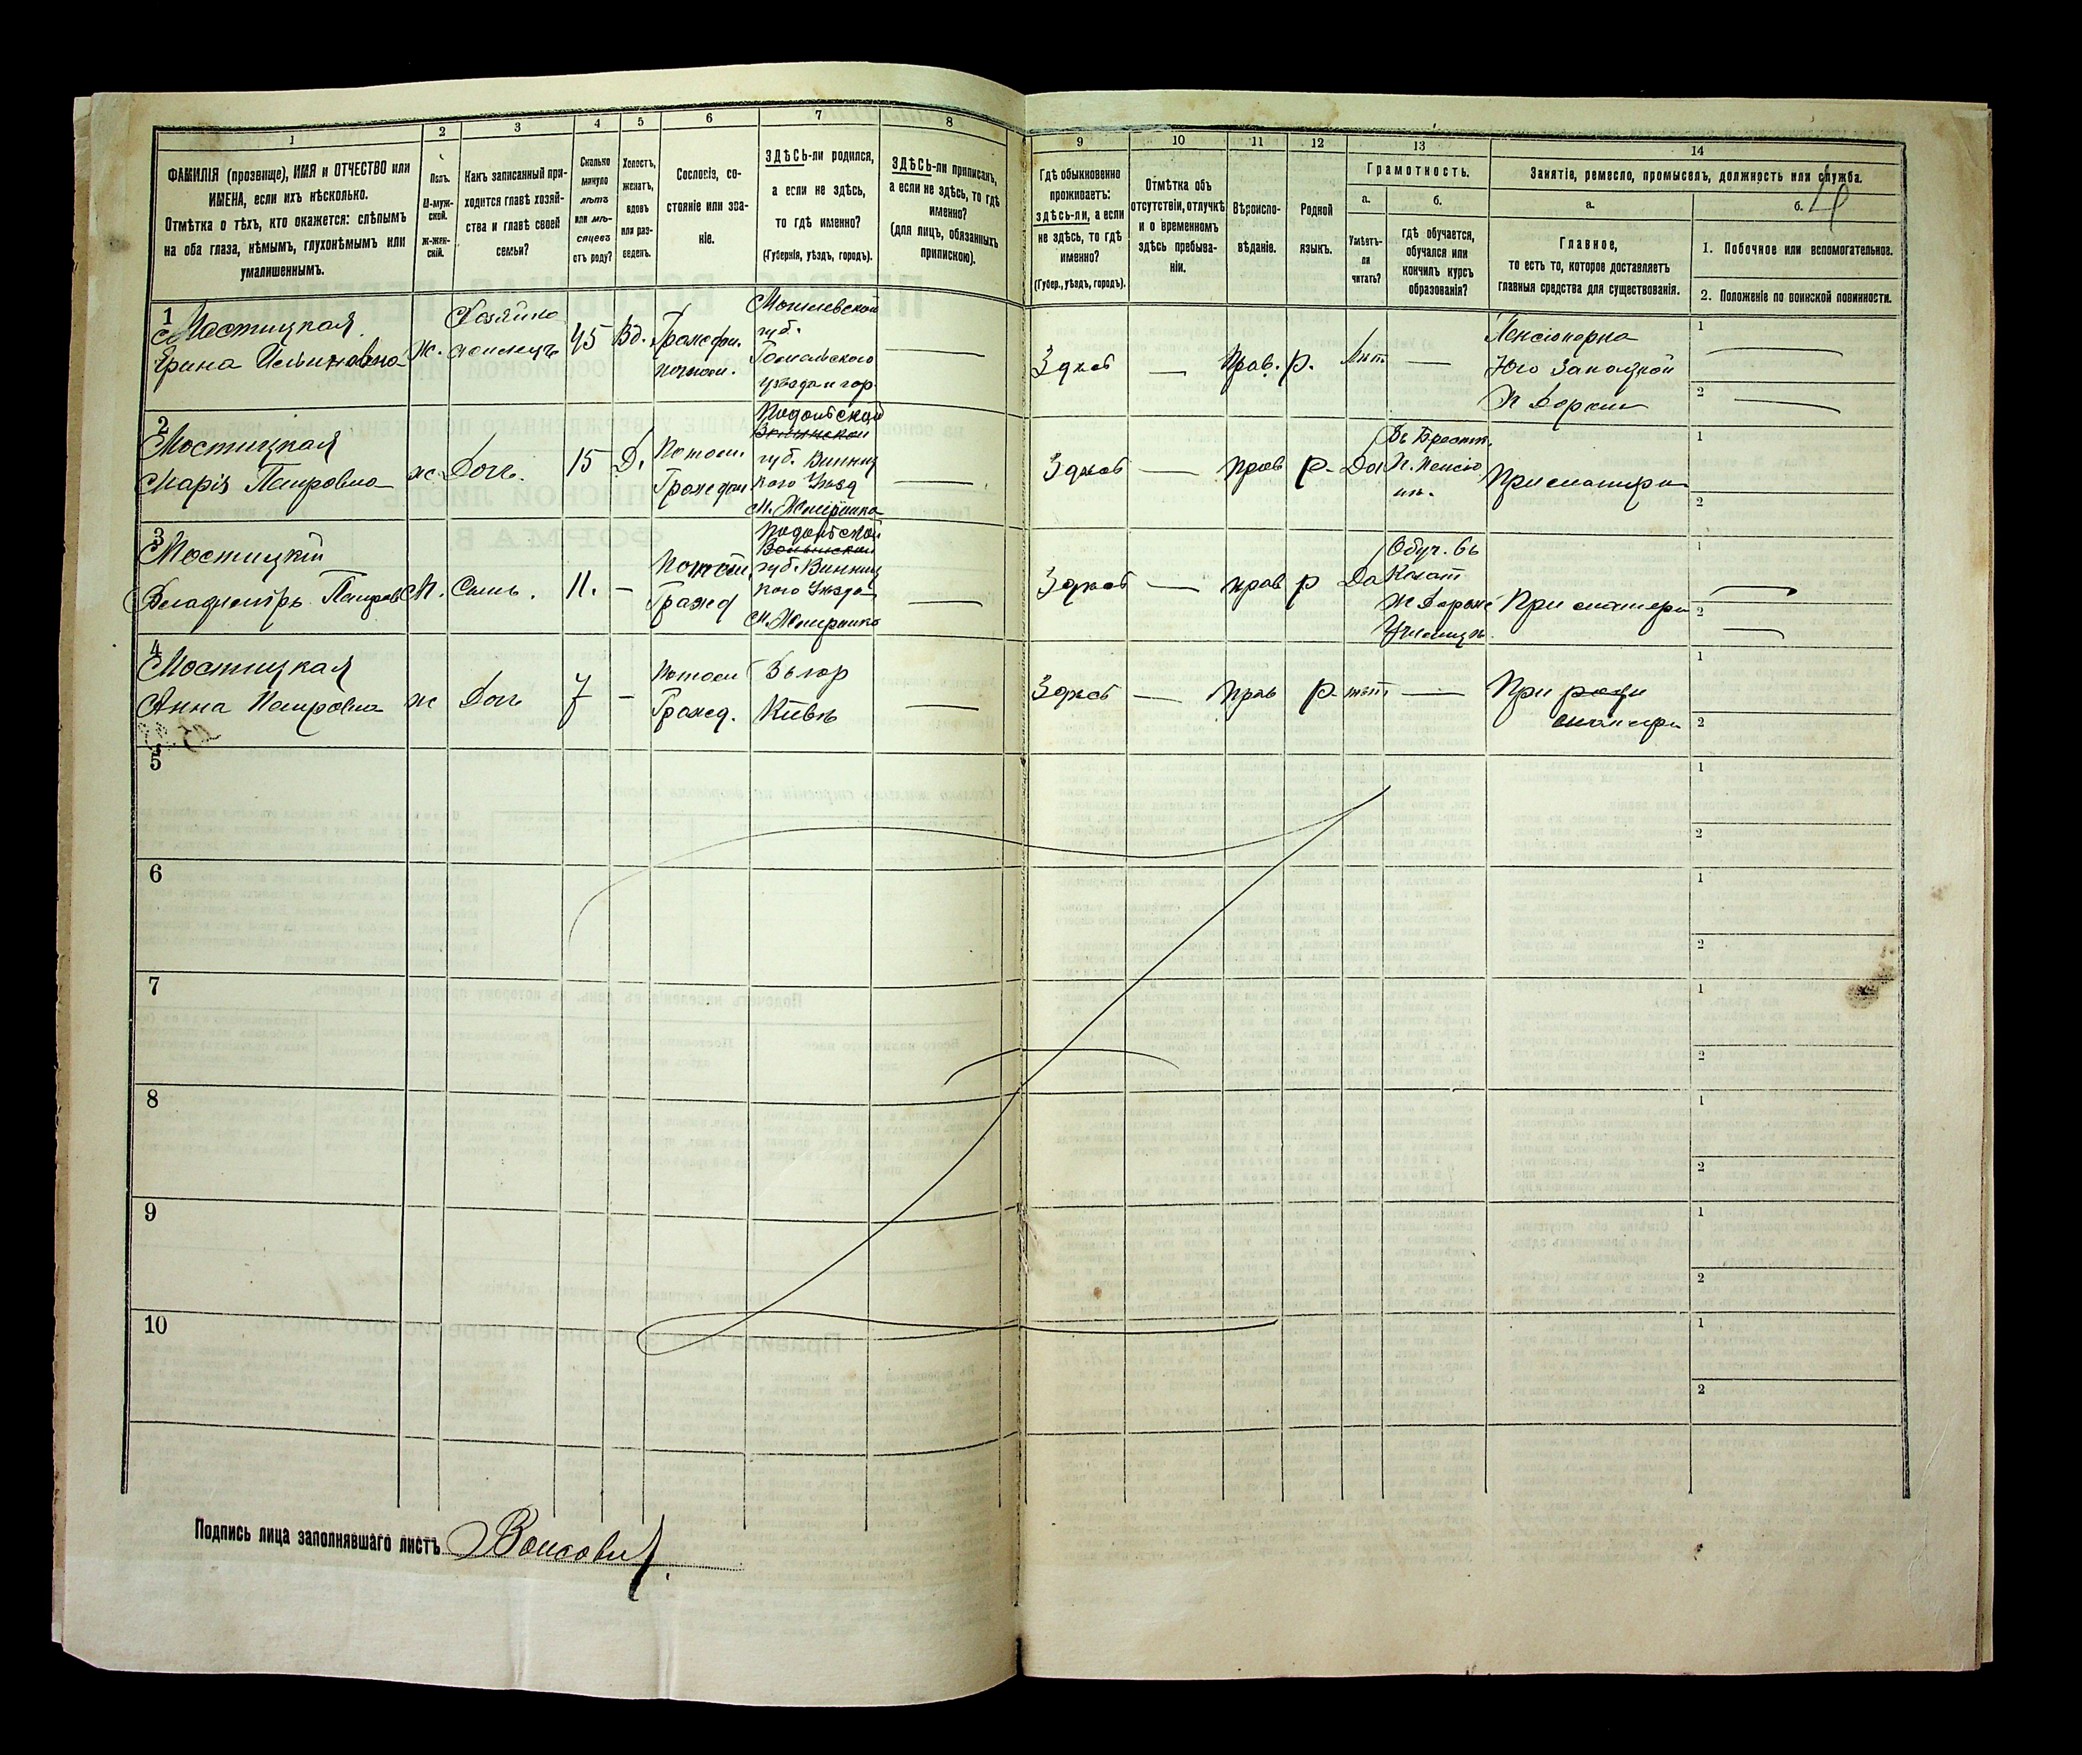 1
2
3
4
5
6
7
8
ФАМИЛІЯ (прозвище), ИМЯ и ОТЧЕСТВО или
ИМЕНА, если ихъ нѣсколько.
Отмѣтка о тѣхъ, кто окажется: слѣпымъ
на оба глаза, нѣмымъ, глухонѣмымъ или
умалишеннымъ.
Полъ.
М-муж-
ской.
Ж-жен-
скій.
Какъ записанный при-
ходится главѣ хозяй-
ства и главѣ своей
семьи?
Сколько
минуло
лѣтъ
или мѣ-
сяцевъ
отъ роду?
Холостъ,
женатъ,
вдовъ
или раз-
веденъ.
Сословіе, со-
стояніе или зва-
ніе.
ЗДѢСЬ-ли родился,
а если не здѣсь,
то гдѣ именно?
(Губернія, уѣздъ, городъ).
ЗДѢСЬ-ли приписанъ,
а если не здѣсь, то гдѣ
именно?
(для лицъ, обязанныхъ
припискою).
9
10
11
12
13
14
Гдѣ обыкновенно
проживаетъ:
здѣсь-ли, а если
не здѣсь, то гдѣ
именно?
(Губер., уѣздъ, городъ).
Отмѣтка объ
отсутствіи, отлучкѣ
и о временномъ
здѣсь пребыва-
ніи.
Вѣроиспо-
вѣданіе.
Родной
языкъ.
Грамотность.
а.
Умѣетъ-
ли
читать?
б.
гдѣ обучается,
обучался или
кончилъ курсъ
образованія?
Занятіе, ремесло, промыселъ, должность или служба.
а.
Главное,
то есть то, которое доставляетъ
главныя средства для существованія.
б.
4
1. Побочное или вспомогательное.
2. Положеніе по воинской повинности.
1
Мостицкая
Ирина
Ж.
Хозяйка
45
Вд.
Могилевской
губ.
Гомельского
уѣзда и гор.
Здѣсь
Прав.
р.
нѣт
Пенсіонерка
Юго Западной
Ж Дороги
1
2
2
Мостицкая
Марія Петровна
ж.
Дочь.
15
Д.
Потом
Граждан
Подольской
Волынской
губ. Винниц
кого Уѣзд
М. Жмеринка
Здѣсь
прав
р.
Да
При матери
1
2
3
Мостицкій
Владиміръ Петров
М.
Сынъ.
11.
Потом
Гражд
Подольской
Волынской
губ. Винниц
кого Уѣзда
М. Жмеринка
Здѣсь
прав
р
Да
Обуч. въ
Ж Дорож
Училищѣ.
При матери
1
2
4
Мостицкая
Анна Петровна
ж
Дочь
7
Потом
Гражд.
Въ гор
Кіевѣ
Здѣсь
Прав
р.
нѣт
При
матери
1
2
5
1
2
6
1
2
7
1
2
8
1
2
9
1
2
10
1
2
Подпись лица заполнявшаго листъ